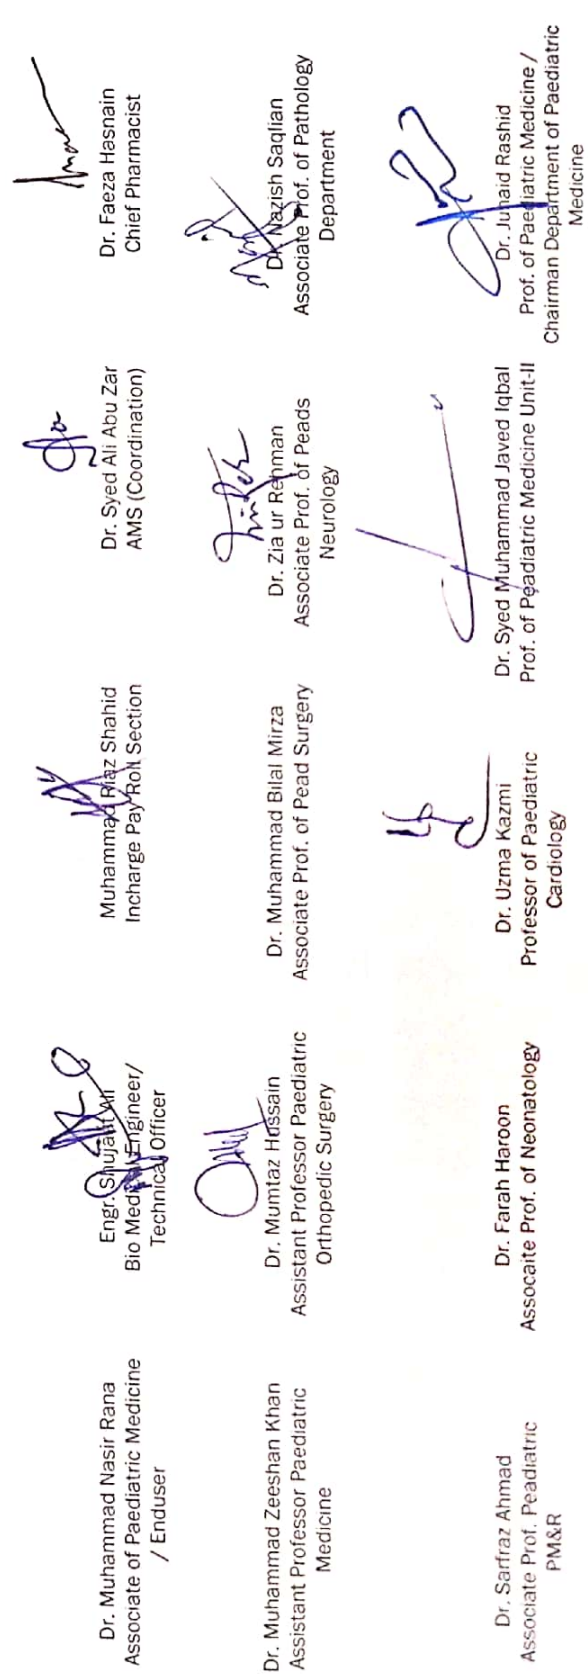 Dr. Muhammad Nasir Rana
Associate of Paediatric Medicine
/ Enduser
Engr. Shujaat Ali
Bio Medical Engineer/
Technical Officer
Muhammad Riaz Shahid
Incharge Pay Roll Section
Dr. Syed Ali Abu Zar
AMS (Coordination)
Dr. Faeza Hasnain
Chief Pharmacist
Dr. Muhammad Zeeshan Khan
Assistant Professor Paediatric
Medicine
Dr. Mumtaz Hussain
Assistant Professor Paediatric
Orthopedic Surgery
Dr. Muhammad Bilal Mirza
Associate Prof. of Pead Surgery
Dr. Zia ur Rehman
Associate Prof. of Peads
Neurology
Dr. Nazish Saqlian
Associate Prof. of Pathology
Department
Dr. Sarfraz Ahmad
Associate Prof. Peadiatric
PM&R
Dr. Farah Haroon
Assocaite Prof. of Neonatology
Dr. Uzma Kazmi
Professor of Paediatric
Cardiology
Dr. Syed Muhammad Javed Iqbal
Prof. of Peadiatric Medicine Unit-II
Dr. Junaid Rashid
Prof. of Paediatric Medicine /
Chairman Department of Paediatric
Medicine